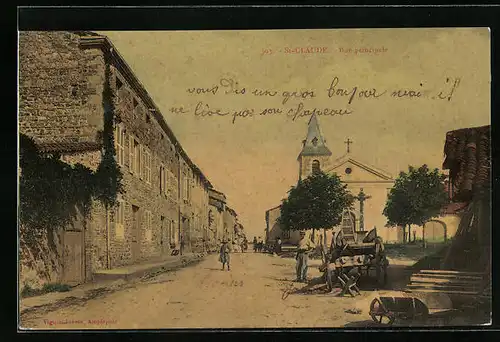 307. - St-CLAUDE. - Rue principale
vous Dis un gros bonjour mais il
ne lève pas son chapeau
Amplepuis